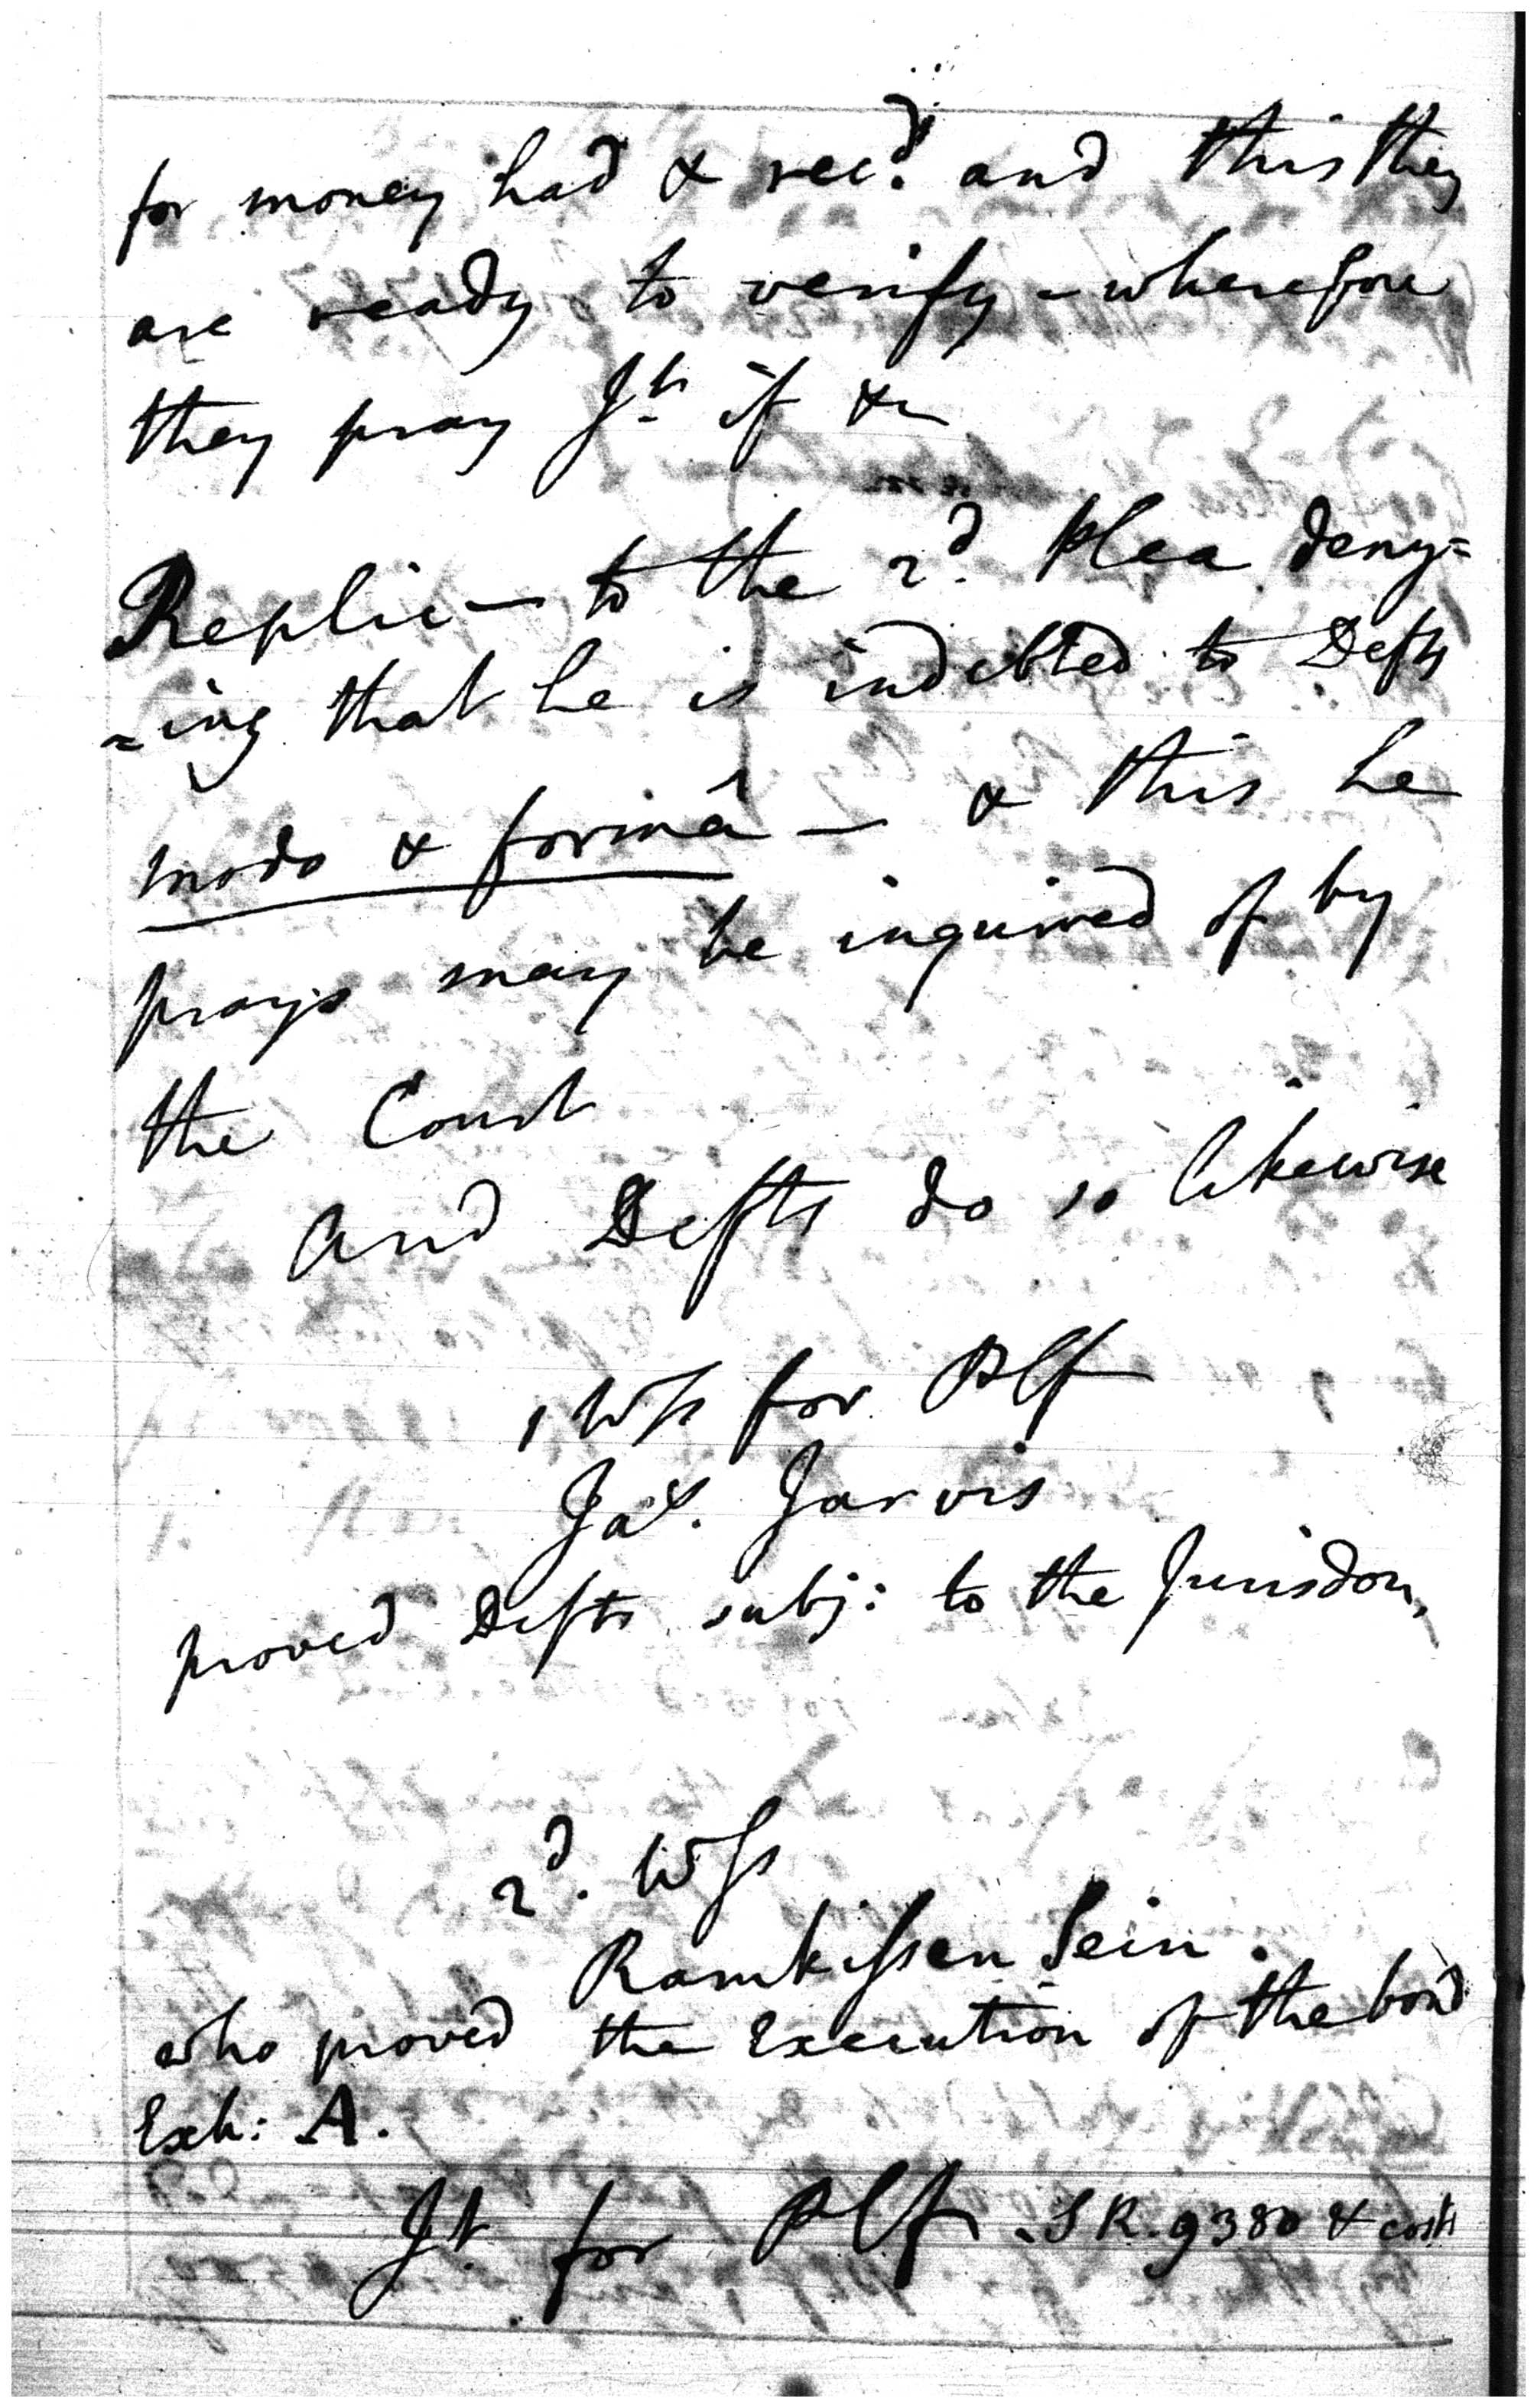 for money had & rec.d and this they
are ready to verify - wherefore
they pray Jt if &c
Replic— to the 2d. Plea deny=
=ing that he is indebted to Defts
modo & formâ — & this he
prays may be inquired of by
the Court
And Defts do so likewise
1 Wss for Plf
Jas. Jarvis
proved Defts subj: to the Jurisdon,
2d. Wss
Ramkissen Sein.
who proved the Execution of the bond
Exh: A.
Jt. for Plf. SR. 9380 & costs